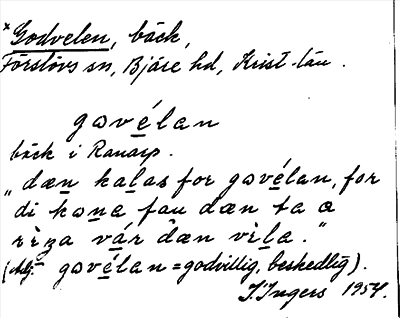 × Godvelen, bäck,
Förslövs sn, Bjäre hd, Krist-län.
gωvélan
bäck i Ranarp.
„dæn kalas for gωvélan, for
di kωna fau dæn ta ω
riza vár dæn vila.”
(Adj. gωvélan = godvillig, beskedlig).
I. Ingers 1954.